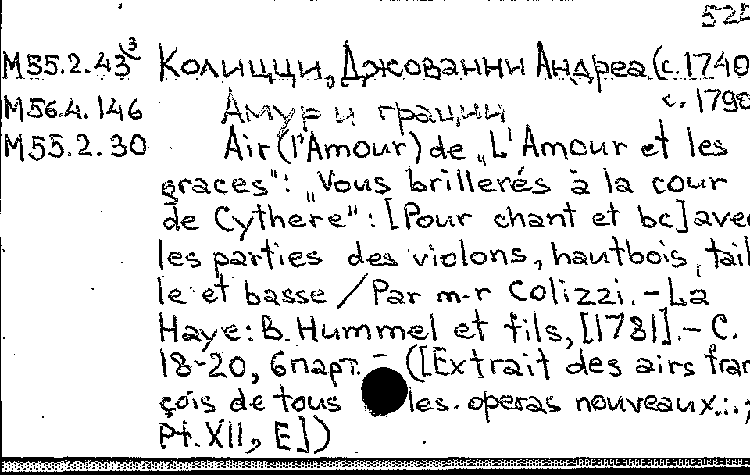 525
М55.2.43³ Колицци, Джованни Андреа (c. 1740
М56.4.146 Амур и грации c. 1790
М55.2.30 Air (l'Amour) de „L'Amour et les
graces": „Vous brillerés à la cour
de Cythere": [Pour chant et bc] avec
les parties des violons, hautbois, tail
le et basse / Par m-r Colizzi. – La
Haye: B. Hummel et fils, [1781]. – C.
18-20, 6 парт. – ([Extrait des airs fran
çois de tous les operas nouveaux...;
Pt. XII, E])